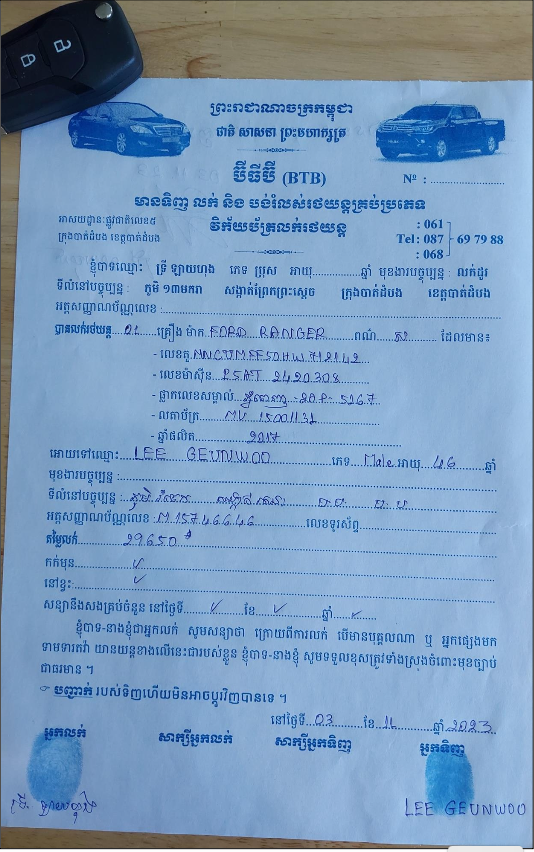 ព្រះរាជាណាចក្រកម្ពុជា
ជាតិ សាសនា ព្រះមហាក្សត្រ
ប៊ីធីប៊ី (BTB)
Nº :
មានទិញ លក់ និង បង់រំលស់រថយន្តគ្រប់ប្រភេទ
អាសយដ្ឋានៈផ្លូវជាតិលេខ៥
ក្រុងបាត់ដំបង ខេត្តបាត់ដំបង
វិក័យប័ត្រលក់រថយន្ត
: 061
Tel : 087 - 69 79 88
: 068
ខ្ញុំបាទឈ្មោះ ទ្រី ឡាយហុង ភេទ ប្រុស អាយុ ឆ្នាំ មុខងារបច្ចុប្បន្ន : លក់ដូរ
ទីលំនៅបច្ចុប្បន្ន : ភូមិ ១៣មករា សង្កាត់ព្រែកព្រះស្តេច ក្រុងបាត់ដំបង ខេត្តបាត់ដំបង
អត្តសញ្ញាណប័ណ្ណលេខ :
បានលក់រថយន្ត 01 គ្រឿង ម៉ាក FORD RANGER ពណ៌ ស ដែលមាន៖
- លេខតួ
- លេខម៉ាស៊ីន P5AT 2420308
- ផ្លាកលេខសម្គាល់ ភ្នំពេញ 2AP-5267
- លតាប័ត្រ MV 15001131
- ឆ្នាំផលិត 2017
អោយទៅឈ្មោះ LEE GEUNWOO ភេទ Male អាយុ 46 ឆ្នាំ
មុខងារបច្ចុប្បន្ន :
ទីលំនៅបច្ចុប្បន្ន : ភូមិ
អត្តសញ្ញាណប័ណ្ណលេខ : M 15746646 លេខទូរស័ព្ទ
តម្លៃលក់ 29650 $
កក់មុន ✓
នៅខ្វះ ✓
សន្យានឹងសងគ្រប់ចំនួន នៅថ្ងៃទី ✓ ខែ ✓ ឆ្នាំ ✓
ខ្ញុំបាទ-នាងខ្ញុំជាអ្នកលក់ សូមសន្យាថា ក្រោយពីការលក់ បើមានបុគ្គលណា ឬ អ្នកផ្សេងមក
ទាមទារតវ៉ា យានយន្តខាងលើនេះជារបស់ខ្លួន ខ្ញុំបាទ-នាងខ្ញុំ សូមទទួលខុសត្រូវទាំងស្រុងចំពោះមុខច្បាប់
ជាធរមាន ។
បញ្ជាក់ របស់ទិញហើយមិនអាចប្តូរវិញបានទេ ។
នៅថ្ងៃទី 03 ខែ 11 ឆ្នាំ 2023
អ្នកលក់ សាក្សីអ្នកលក់ សាក្សីអ្នកទិញ អ្នកទិញ
ទ្រី ឡាយហុង LEE GEUNWOO